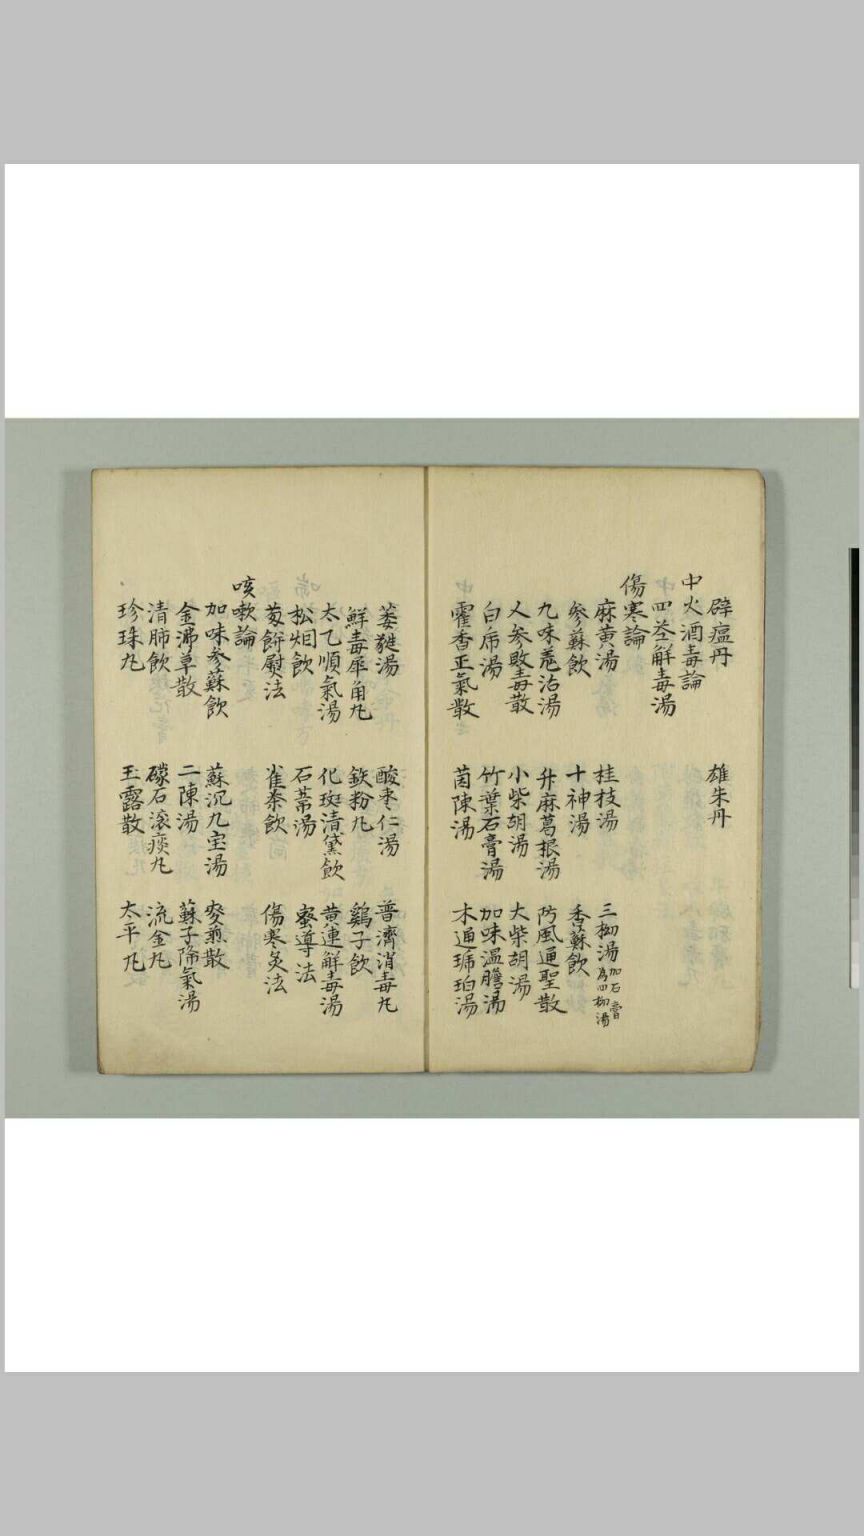 辟瘟丹 雄朱丹
中火酒毒論
四苓解毒湯
傷寒論
麻黄湯 桂枝湯 三柳湯 加石膏為四柳湯
參蘇飲 十神湯 香蘇飲
九味羗活湯 升麻葛根湯 防風通聖散
人參敗毒散 小柴胡湯 大柴胡湯
白虎湯 竹葉石膏湯 加味温膽湯
霍香正氣散 茵陳湯 木通琥珀湯
萎蕤湯 酸枣仁湯 普濟消毒丸
觧毒犀角丸 鉄粉丸 鷄子飲
太乙順氣湯 化斑清黛飲 黄連觧毒湯
松烟飲 石莱湯 蜜導法
葱餅熨法 雀桼飲 傷寒灸法
咳嗽論
加味參蘇飲 蘇沉九宝湯 麥煎散
金沸草散 二陳湯 蘇子降氣湯
清肺飲 礞石滚痰丸 流金丸
珍珠丸 玉露散 太平丸